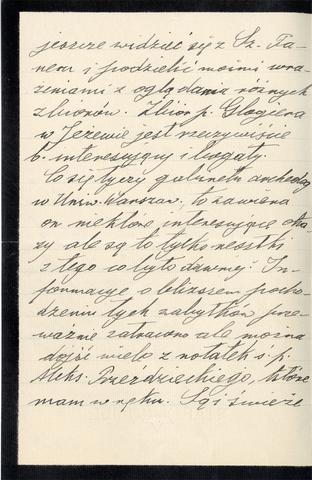 jeszcze widzieć się z Sz. Pa-
nem i podzielić moimi wra-
żeniami z oglądania różnych
zbiorów. Zbiór p. Glogiera
w Jeżewie jest rzeczywiście
b. interesujący i bogaty.
Co się tyczy gabinetu archeolog
w Uniw. Warszaw. to zawiera
on niektóre interesujące oka-
zy ale są to tylko resztki
z tego co było dawniej. In-
formacye o bliższem pocho-
dzeniu tych zabytków prze-
ważnie zatracono ale można
dojść wiele z notatek ś. p.
Aleks. Przeździeckiego, które
mam w ręku. Są i świeże